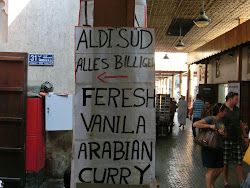 31
ALDI SÜD
ALLES BILLIGER
FERESH
VANILA
ARABIAN
CURRY